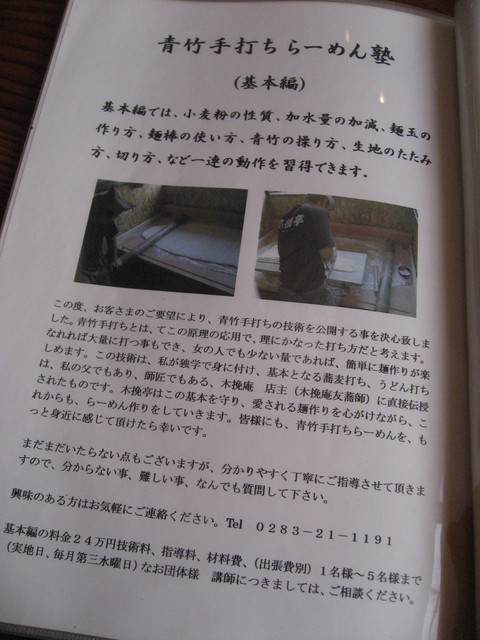 青竹手打ちらーめん塾
(基本編)
基本編では、小麦粉の性質、加水量の加減、麺玉の
作り方、麺棒の使い方、青竹の操り方、生地のたたみ
方、切り方、など一連の動作を習得できます。
この度、お客さまのご要望により、青竹手打ちの技術を公開する事を決心致しま
した。青竹手打ちとは、てこの原理の応用で、理にかなった打ち方だと考えます。
なれれば大量に打つ事もでき、女の人でも少ない量であれば、簡単に麺作りが楽
しめます。この技術は、私が独学で身に付け、基本となる蕎麦打ち、うどん打ち
は、私の父でもあり、師匠でもある、木挽庵 店主(木挽庵友蕎師)に直接伝授
されたものです。木挽亭はこの基本を守り、愛される麺作りを心がけながら、こ
れからも、らーめん作りをしていきます。皆様にも、青竹手打ちらーめんを、も
っと身近に感じて頂けたら幸いです。
まだまだいたらない点もございますが、分かりやすく丁寧にご指導させて頂きま
すので、分からない事、難しい事、なんでも質問して下さい。
興味のある方はお気軽にご連絡ください。Tel ０２８３−２１−１１９１
基本編の料金２４万円技術料、指導料、材料費、(出張費別)１名様〜５名様まで
(実地日、毎月第三水曜日)なお団体様 講師につきましては、ご相談ください。